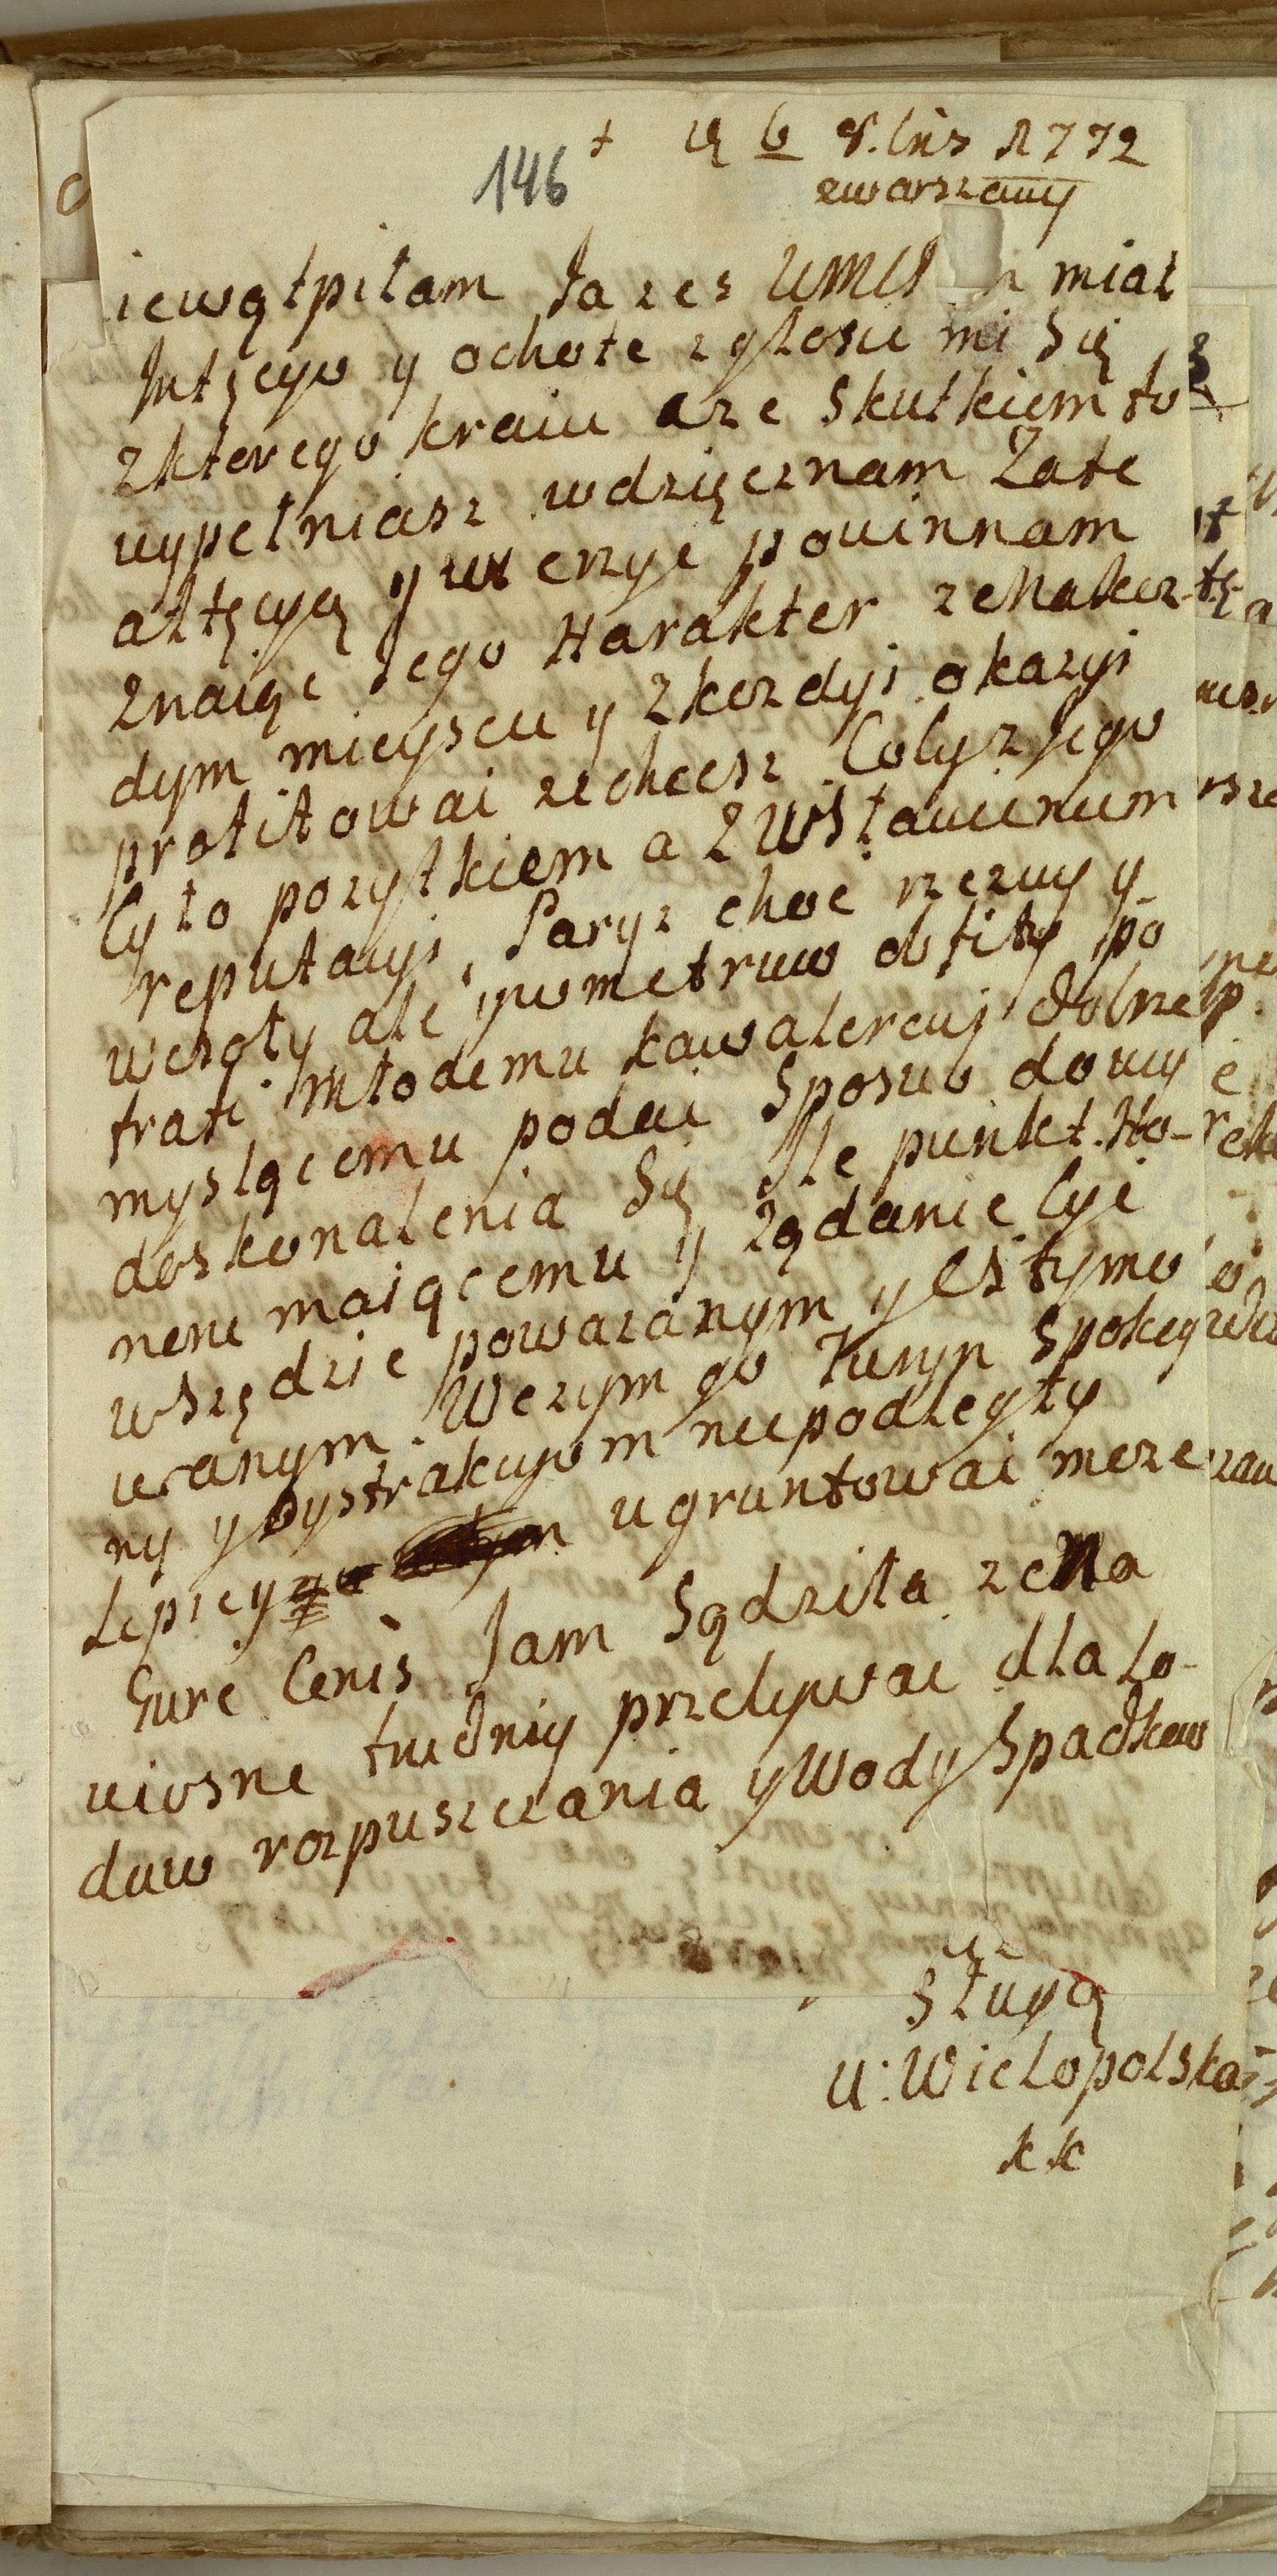 146
+ d 6 8.bris 1772
zwarszawy
iewątpiłam Ja zes UMCI n miał
Jntęcyo y ochote zgłosic mi Się
zkterego kraiu aze Skutkiem to
wypełniasz wdzięcznam Zate
attęcyą y wierzyc powinnam
znaiąc Jego Harakter zeNakaz-
dym mieyscu y zkazdyi okazyi
profitowai zechcesz Colyz Jego
Cy to pozytkiem a zWsławienum
reputacyi, Paryz choc rzezwy y
wesoły ale yeometruw obfity po
trafi młodemu kawalerowi dobrze
myslącemu podai Sposuo dowy
doskonalenia Się Jle punkt. Ho-
neru maiącemu y ządanie Cyi
wszędzie powazanym y estymo
wanym. Weczym go Turyn Spokoy
ny y Dystrakcyom niepodległy
Lepiey ugruntowai meze
Gure Cenis Jam Sądziła zeNa
wiosne trudniy przebywai dla Lo-
duw rozpuszczania y Wody Spadkow
Sługą
U: Wielopolska
kk